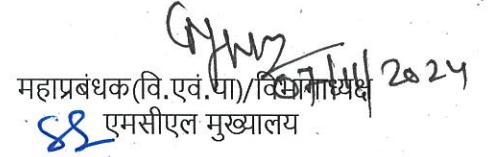 07/11/2024
महाप्रबंधक(वि.एवं.पा)/विभागाध्यक्ष
एमसीएल मुख्यालय